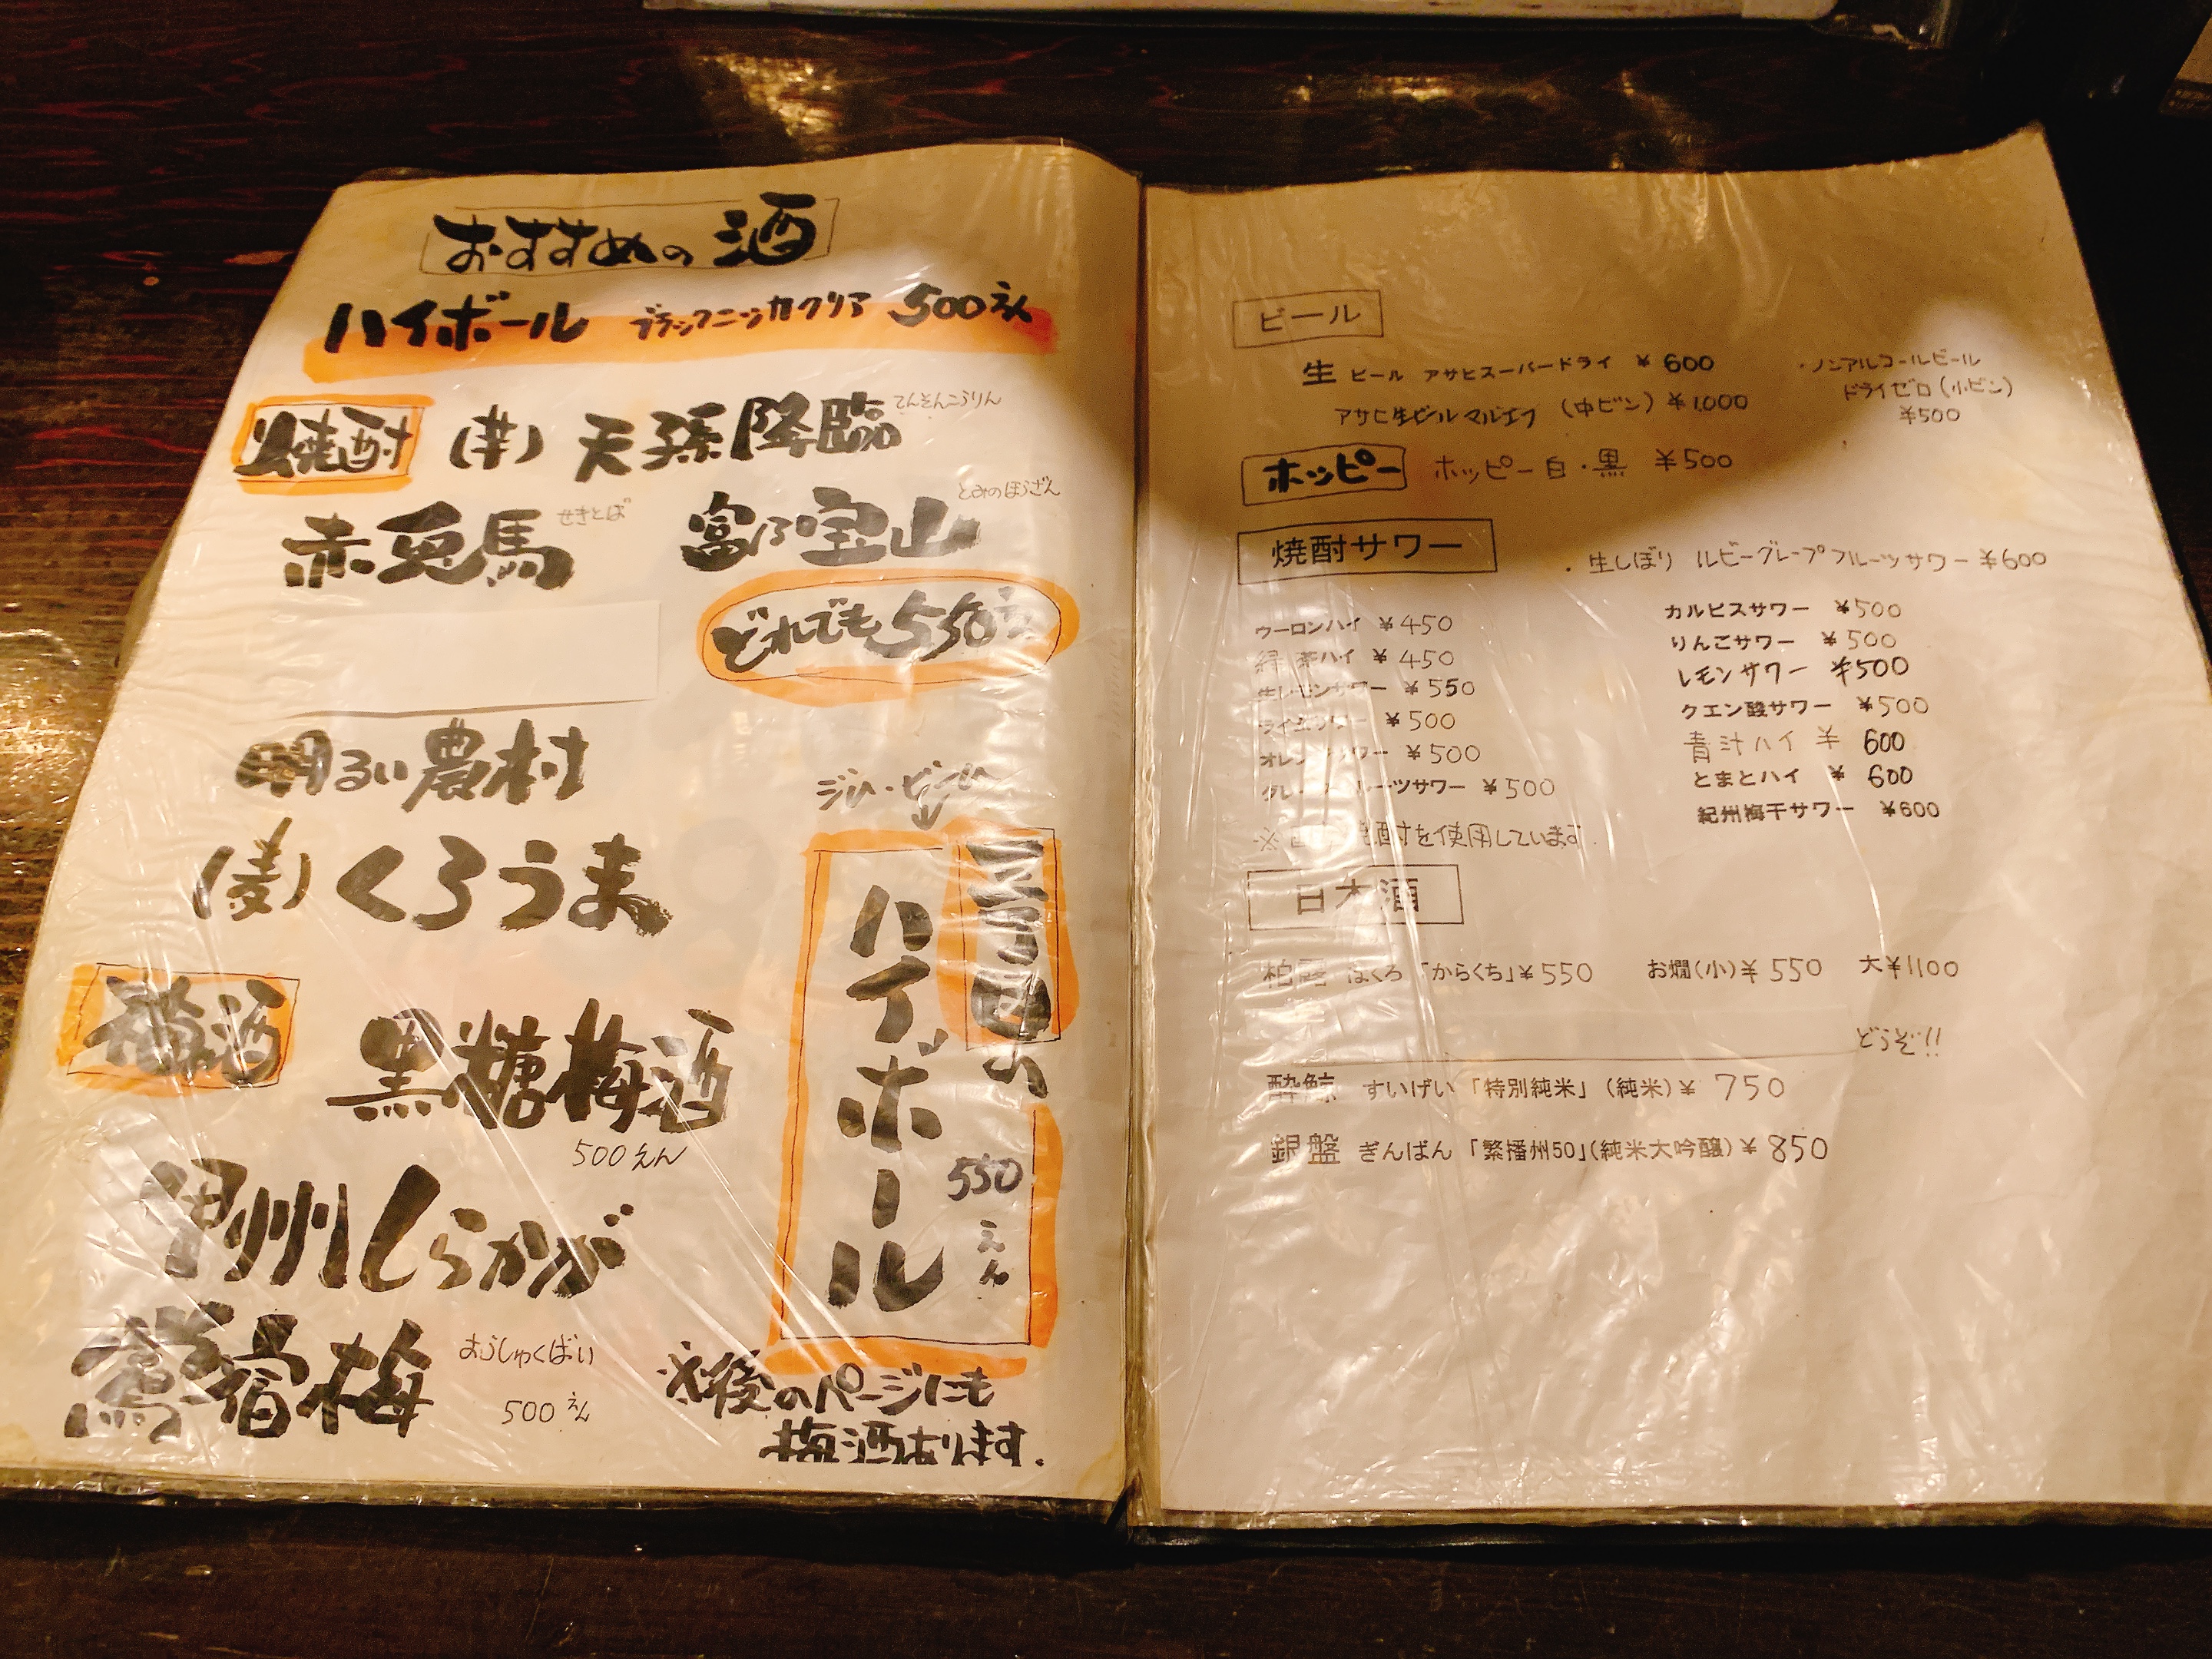 おすすめの酒
ハイボール ブラックニッカクリア 500えん
焼酎 (芋) 天孫降臨 てんそんこうりん
赤兎馬 せきとば 富乃宝山 とみのほうざん
どれでも550えん
明るい農村
(麦) くろうま
ジム・ビーム
ハイボール
550えん
梅酒 黒糖梅酒
500えん
甲州しらかが
鶯宿梅 おうしゅくばい
500えん
※後のページにも
梅酒あります.
ビール
生 ビール アサヒスーパードライ ¥600
アサヒ生ビール マルエフ (中ビン) ¥1,000
・ノンアルコールビール
ドライゼロ(小ビン)
¥500
ホッピー ホッピー白・黒 ¥500
焼酎サワー
・生しぼり ルビーグレープフルーツサワー ¥600
ウーロンハイ ¥450
緑茶ハイ ¥450
生レモンサワー ¥550
ライムサワー ¥500
オレンジサワー ¥500
グレープフルーツサワー ¥500
カルピスサワー ¥500
りんごサワー ¥500
レモンサワー ¥500
クエン酸サワー ¥500
青汁ハイ ¥600
とまとハイ ¥600
紀州梅干サワー ¥600
焼酎を使用しています
日本酒
柏露 はくろ「からくち」¥550 お燗(小)¥550 大¥1100
どうぞ!!
酔鯨 すいげい「特別純米」(純米)¥750
銀盤 ぎんばん「繁播州50」(純米大吟醸)¥850